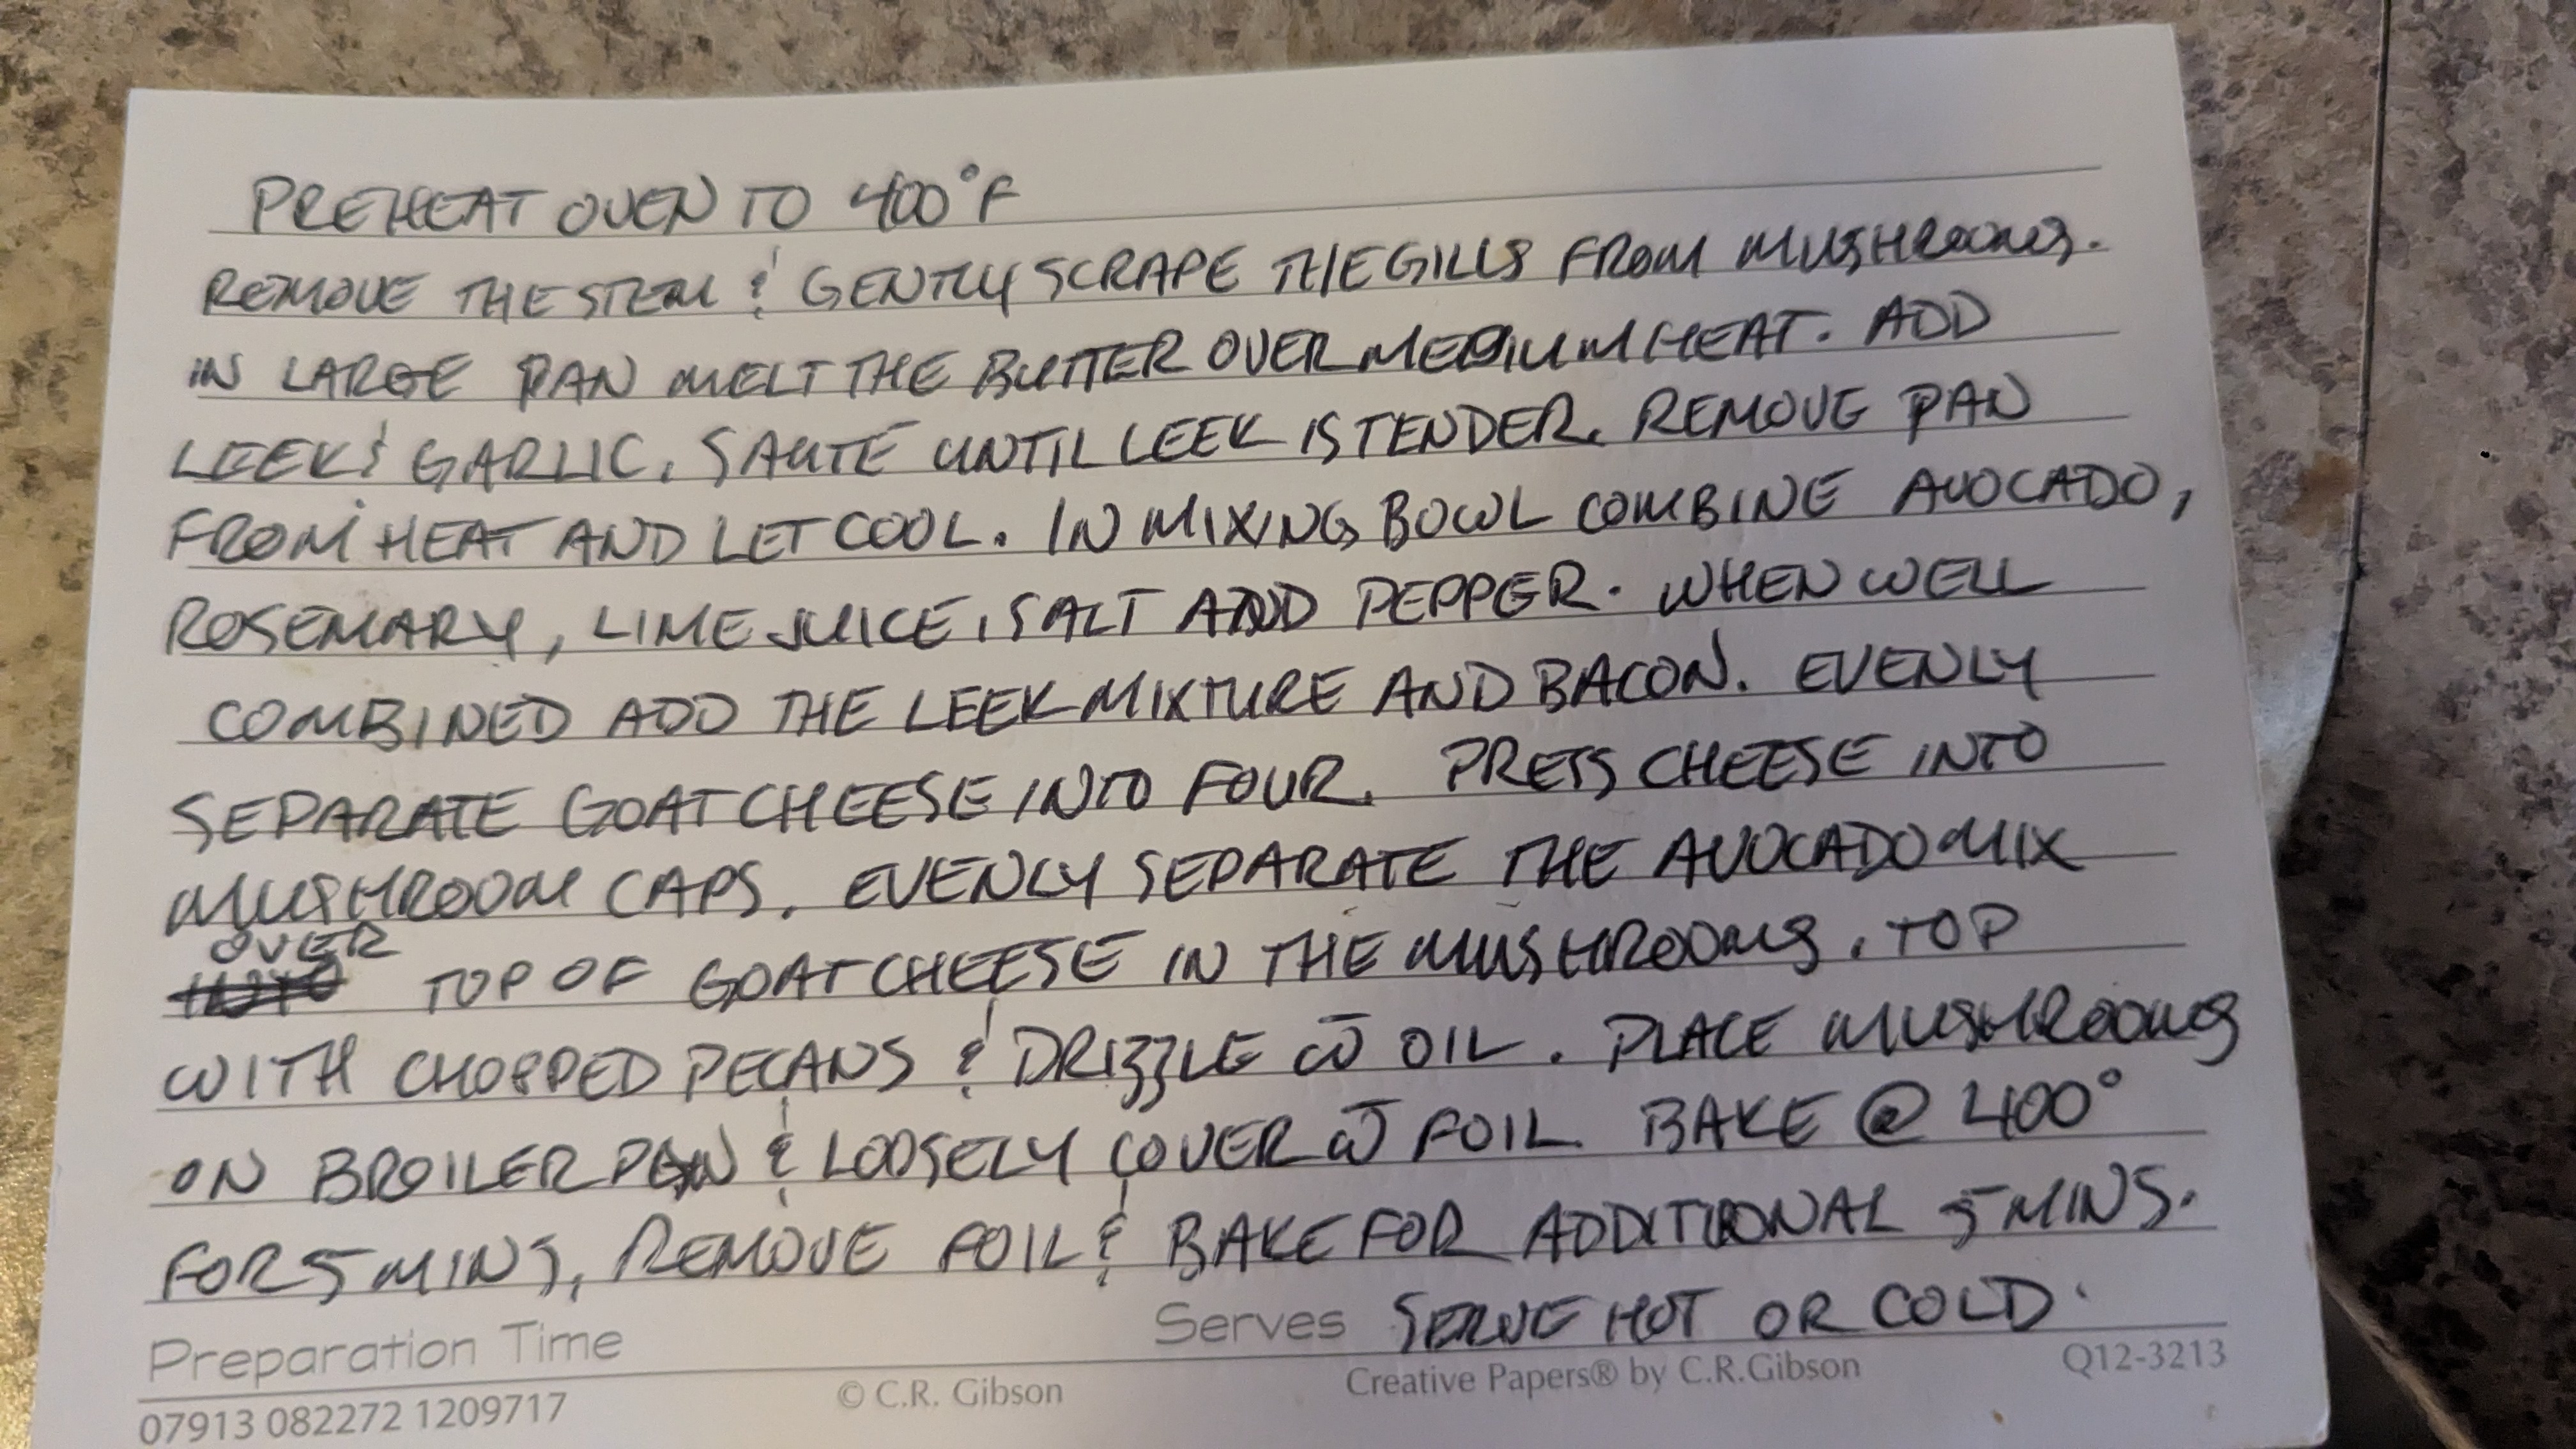 PREHEAT OVEN TO 400°F
REMOVE THE STEM & GENTLY SCRAPE THE GILLS FROM MUSHROOMS.
IN LARGE PAN MELT THE BUTTER OVER MEDIUM HEAT. ADD
LEEK & GARLIC. SAUTÉ UNTIL LEEK IS TENDER. REMOVE PAN
FROM HEAT AND LET COOL. IN MIXING BOWL COMBINE AVOCADO,
ROSEMARY, LIME JUICE, SALT AND PEPPER. WHEN WELL
COMBINED ADD THE LEEK MIXTURE AND BACON. EVENLY
SEPARATE GOAT CHEESE INTO FOUR. PRESS CHEESE INTO
MUSHROOM CAPS. EVENLY SEPARATE THE AVOCADO MIX
OVER TOP OF GOAT CHEESE IN THE MUSHROOMS. TOP
WITH CHOPPED PECANS & DRIZZLE w̅ OIL. PLACE MUSHROOMS
ON BROILER PAN & LOOSELY COVER w̅ FOIL. BAKE @ 400°
FOR 5 MINS, REMOVE FOIL & BAKE FOR ADDITIONAL 5 MINS.
Preparation Time Serves SERVE HOT OR COLD.
07913 082272 1209717 © C.R. Gibson Creative Papers® by C.R.Gibson Q12-3213